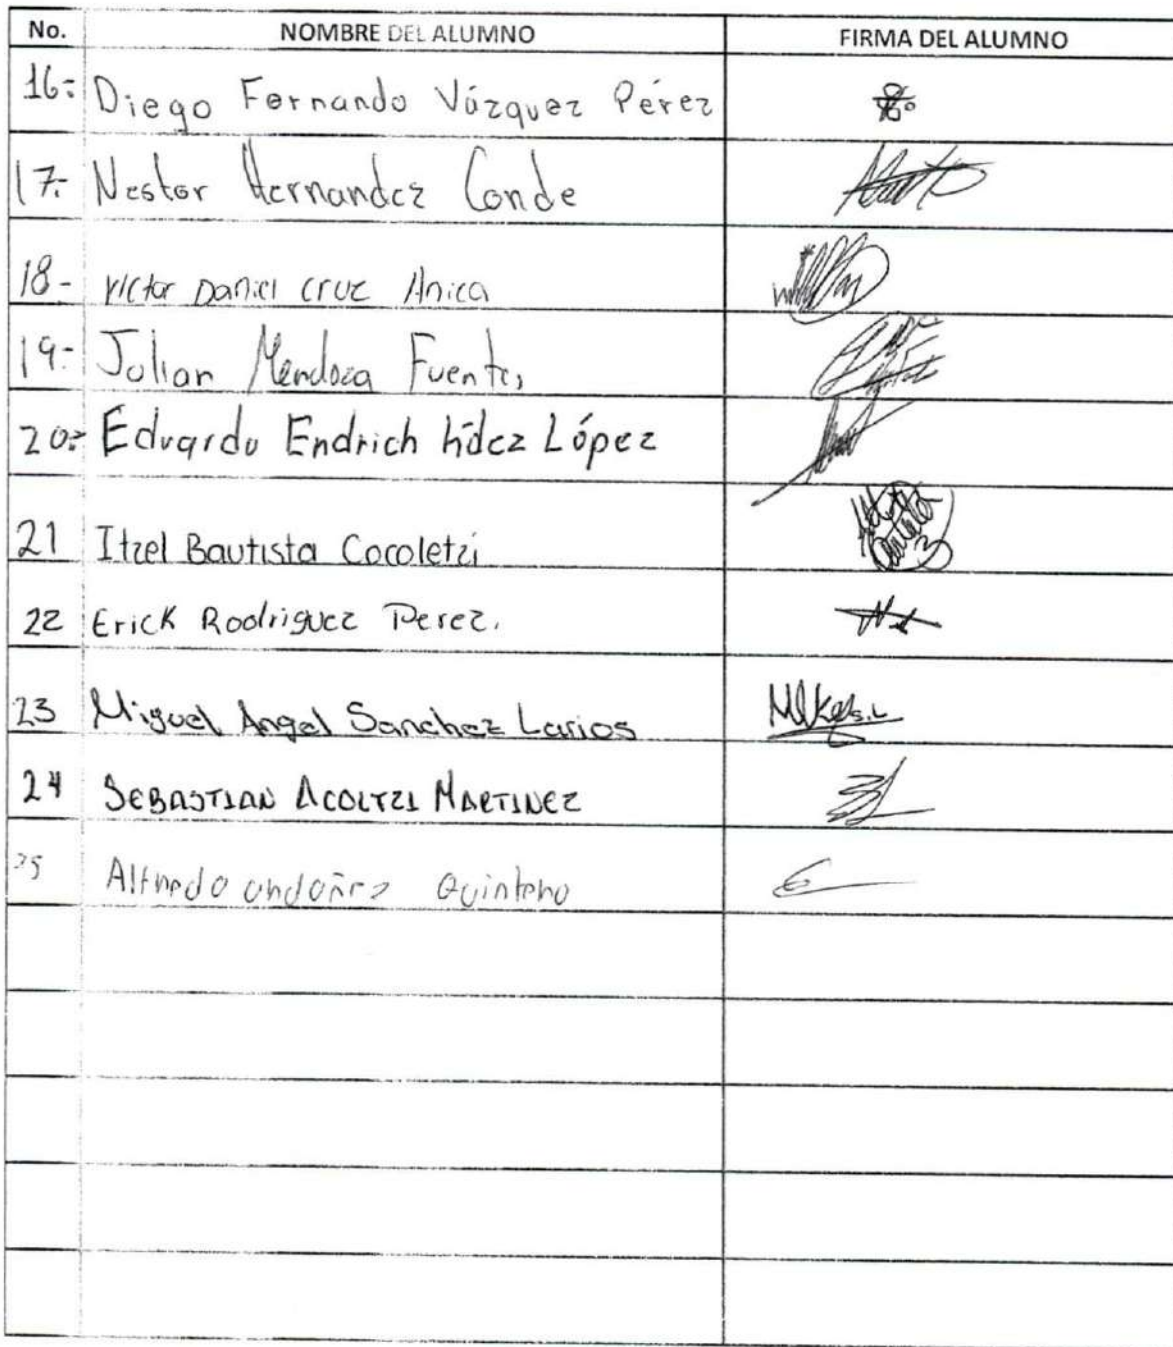 No. NOMBRE DEL ALUMNO FIRMA DEL ALUMNO
16.- Diego Fernando Vázquez Pérez
17.- Nestor Hernandez Conde
18- Victor Daniel cruz Anica
19.- Julian Mendoza Fuentes
20.- Eduardo Endrich hdez López
21 Itzel Bautista Cocoletzi
22 Erick Rodriguez Perez.
23 Miguel Angel Sanchez Larios
24 SEBASTIAN ACOLTZI MARTINEZ
25 Alfredo Quintero